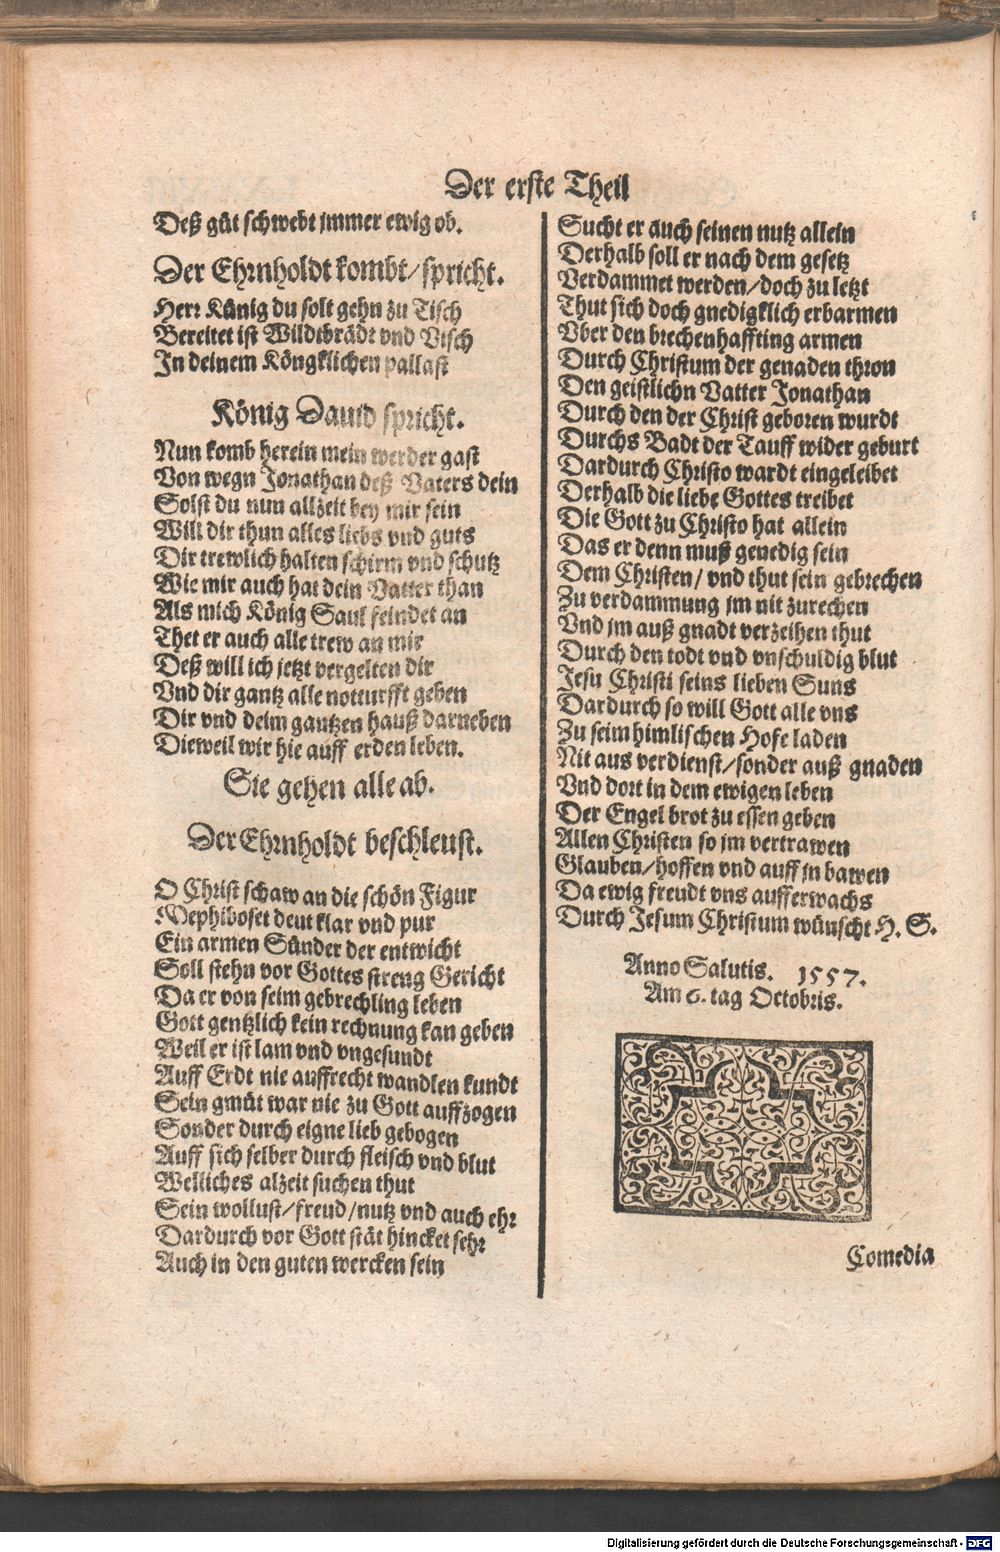 Der erste Theil
Deß güt schwebt jmmer ewig ob.
Der Ehrnholdt kombt/spricht.
Herr Künig du solt gehn zu Tisch
Bereitet ist Wildtbrädt vnd Visch
In deinem Köngklichen pallast
König Dauid spricht.
Nun komb herein mein werder gast
Von wegn Jonathan deß Vaters dein
Solst du nun allzeit bey mir sein
Will dir thun alles liebs vnd guts
Dir trewlich halten schirm vnd schutz
Wie mir auch hat dein Vatter than
Als mich König Saul feindet an
Thet er auch alle trew an mir
Deß will ich jetzt vergelten dir
Vnd dir gantz alle notturfft geben
Dir vnd deim gantzen hauß darneben
Dieweil wir hie auff erden leben.
Sie gehen alle ab.
Der Ehrnholdt beschleust.
O Christ schaw an die schön Figur
Mephiboset deut klar vnd pur
Ein armen Sünder der entwicht
Soll stehn vor Gottes streng Gericht
Da er von seim gebrechling leben
Gott gentzlich kein rechnung kan geben
Weil er ist lam vnd vngesundt
Auff Erdt nie auffrecht wandlen kundt
Sein gmüt war nie zu Gott auffzogen
Sonder durch eigne lieb gebogen
Auff sich selber durch fleisch vnd blut
Welliches alzeit suchen thut
Sein wollust/freud/nutz vnd auch ehr
Dardurch vor Gott stät hincket sehr
Auch in den guten wercken sein
Sucht er auch seinen nutz allein
Derhalb soll er nach dem gesetz
Verdammet werden/doch zu letzt
Thut sich doch gnedigklich erbarmen
Vber den brechenhaffting armen
Durch Christum der genaden thron
Den geistlichn Vatter Jonathan
Durch den der Christ geboren wurdt
Durchs Badt der Tauff wider geburt
Dardurch Christo wardt eingeleibet
Derhalb die liebe Gottes treibet
Die Gott zu Christo hat allein
Das er denn muß genedig sein
Dem Christen/vnd thut sein gebrechen
Zu verdammung jm nit zurechen
Vnd jm auß gnadt verzeihen thut
Durch den todt vnd vnschuldig blut
Jesu Christi seins lieben Suns
Dardurch so will Gott alle vns
Zu seim himlischen Hofe laden
Nit aus verdienst/sonder auß gnaden
Vnd dort in dem ewigen leben
Der Engel brot zu essen geben
Allen Christen so jm vertrawen
Glauben/hoffen vnd auff jn bawen
Da ewig freudt vns aufferwachs
Durch Jesum Christum wünscht H. S.
Anno Salutis. 1557.
Am 6. tag Octobris.
Comedia
Digitalisierung gefördert durch die Deutsche Forschungsgemeinschaft - DFG